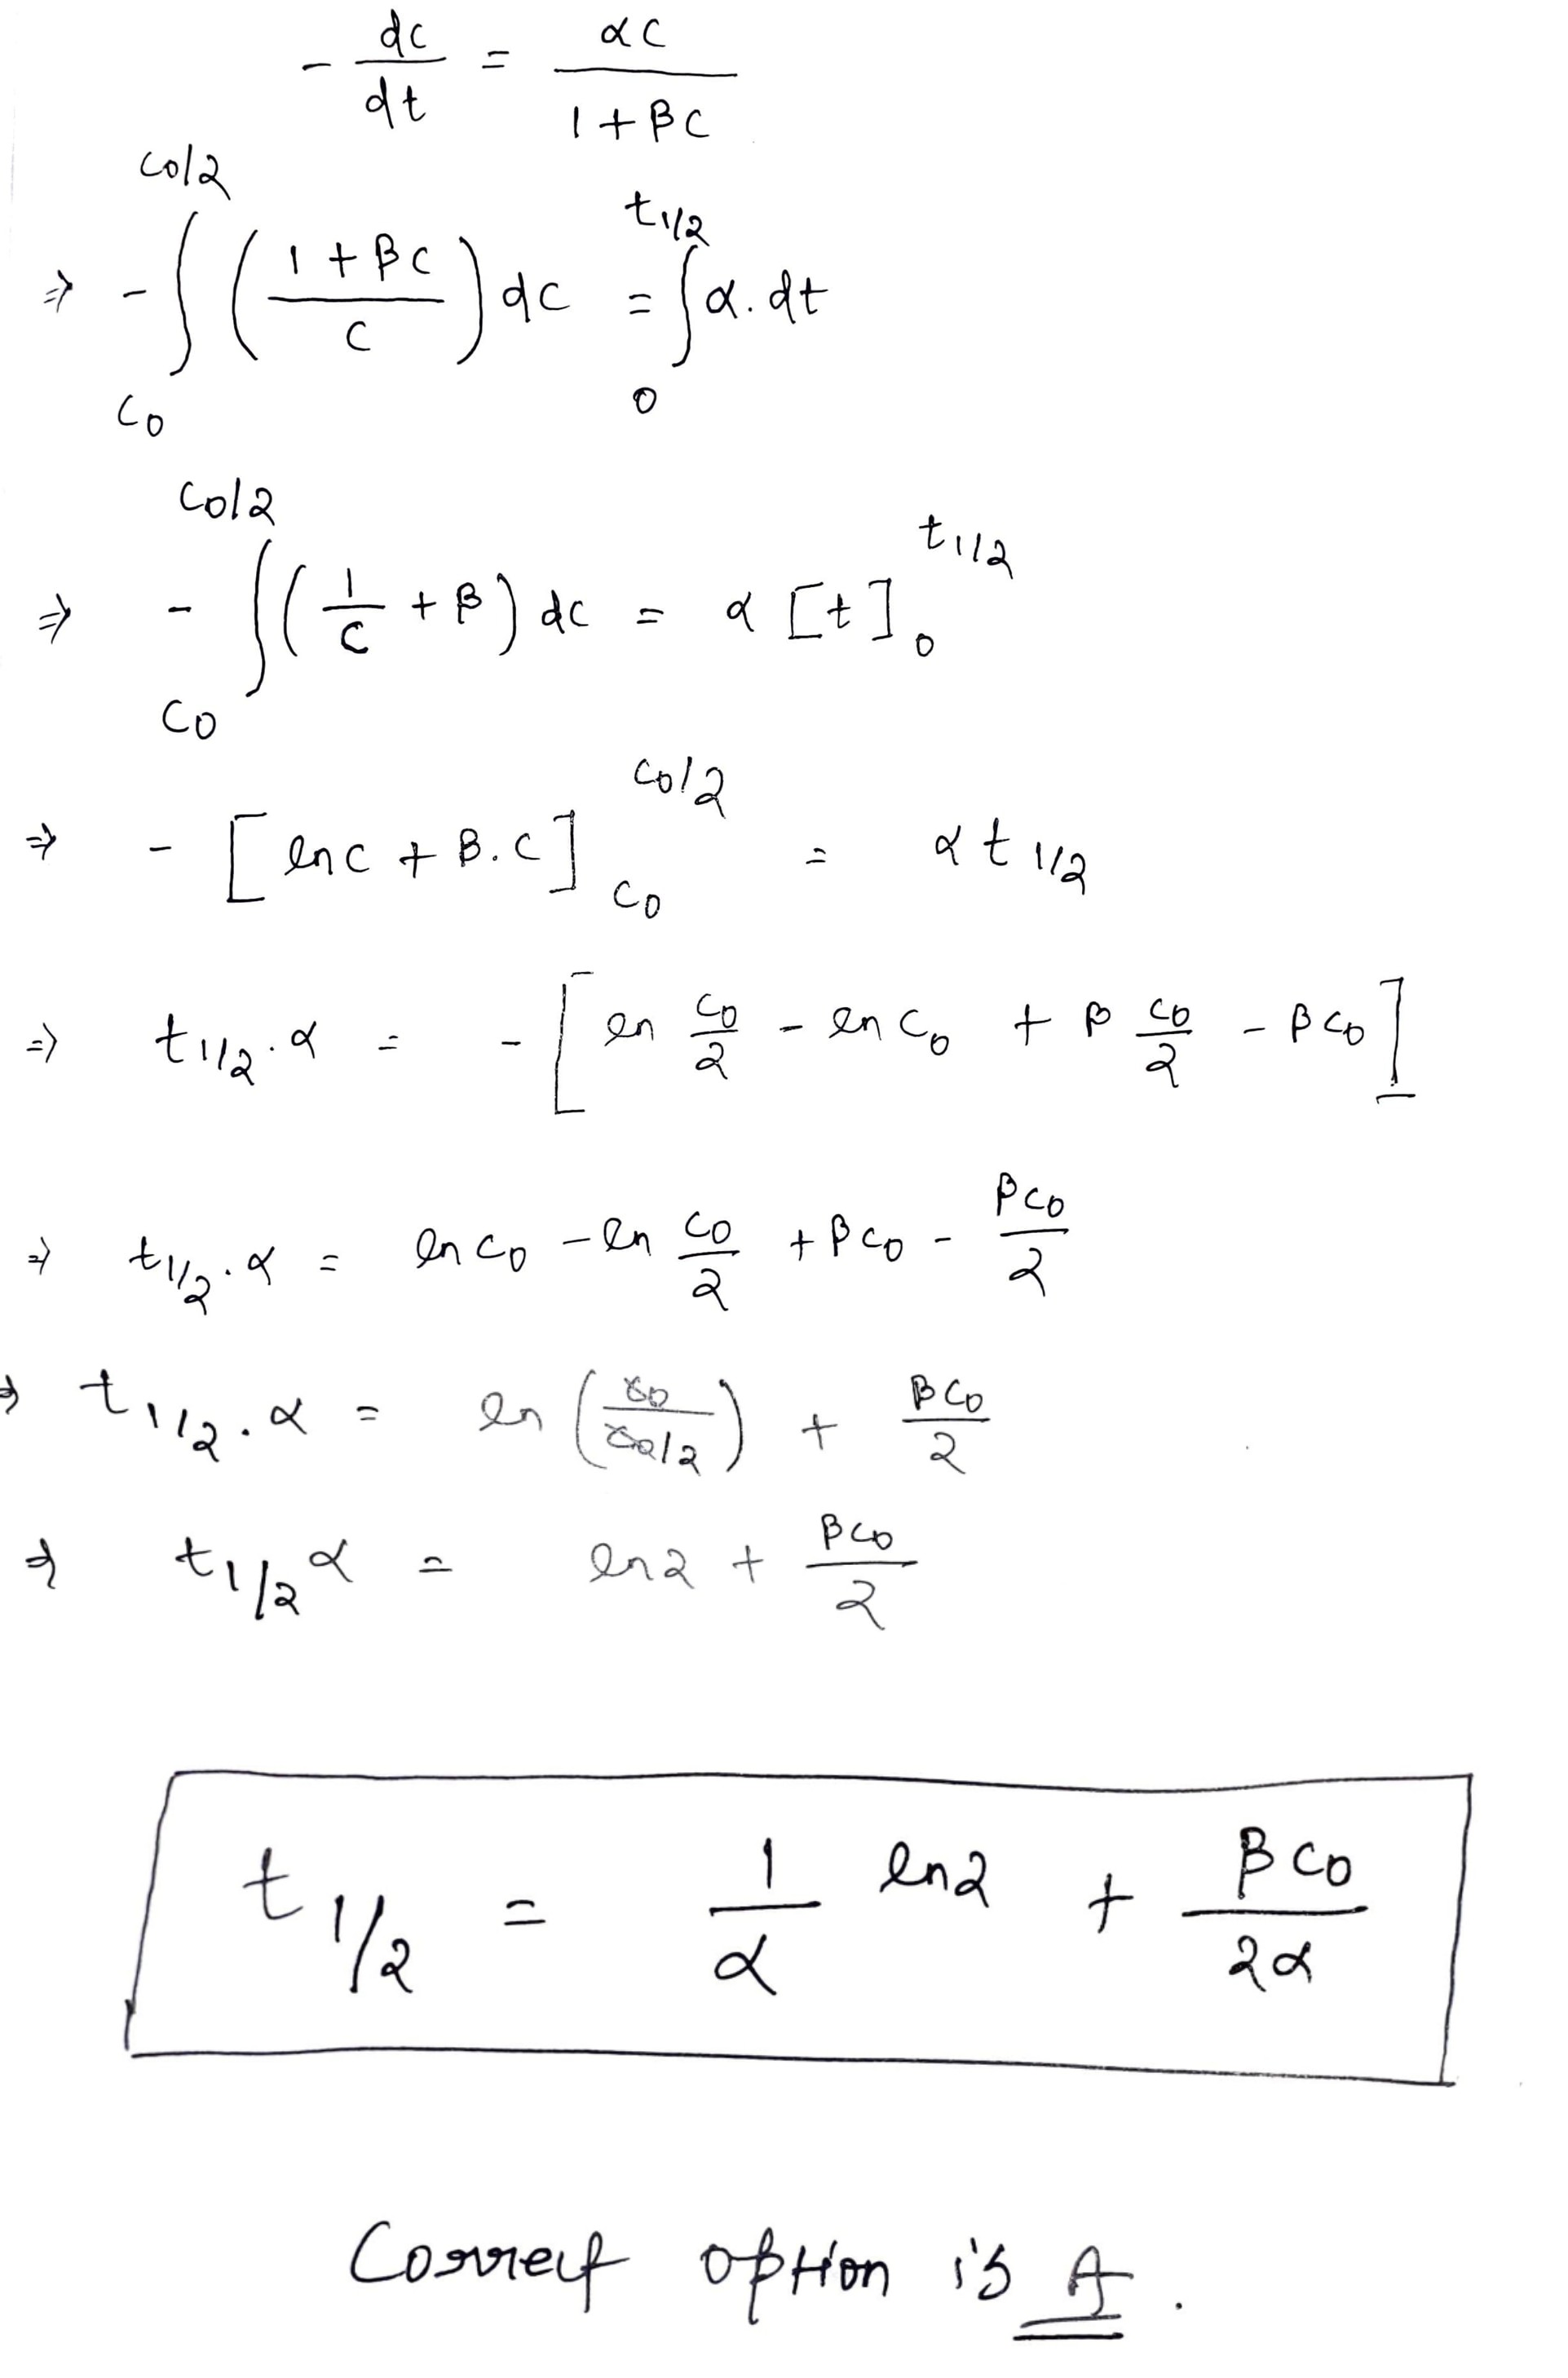 - dc/dt = αC/(1+βC)
⇒ - ∫_{C0}^{C0/2} ((1+βC)/C) dC = ∫_{0}^{t1/2} α.dt
⇒ - ∫_{C0}^{C0/2} (1/C + β) dC = α [t]_{0}^{t1/2}
⇒ - [lnC + β.C]_{C0}^{C0/2} = αt1/2
⇒ t1/2.α = - [ln C0/2 - lnC0 + β C0/2 - βC0]
⇒ t1/2.α = lnC0 - ln C0/2 + βC0 - βC0/2
⇒ t1/2.α = ln (C0/(C0/2)) + βC0/2
⇒ t1/2α = ln2 + βC0/2
t1/2 = 1/α ln2 + βC0/2α
Correct option is A.